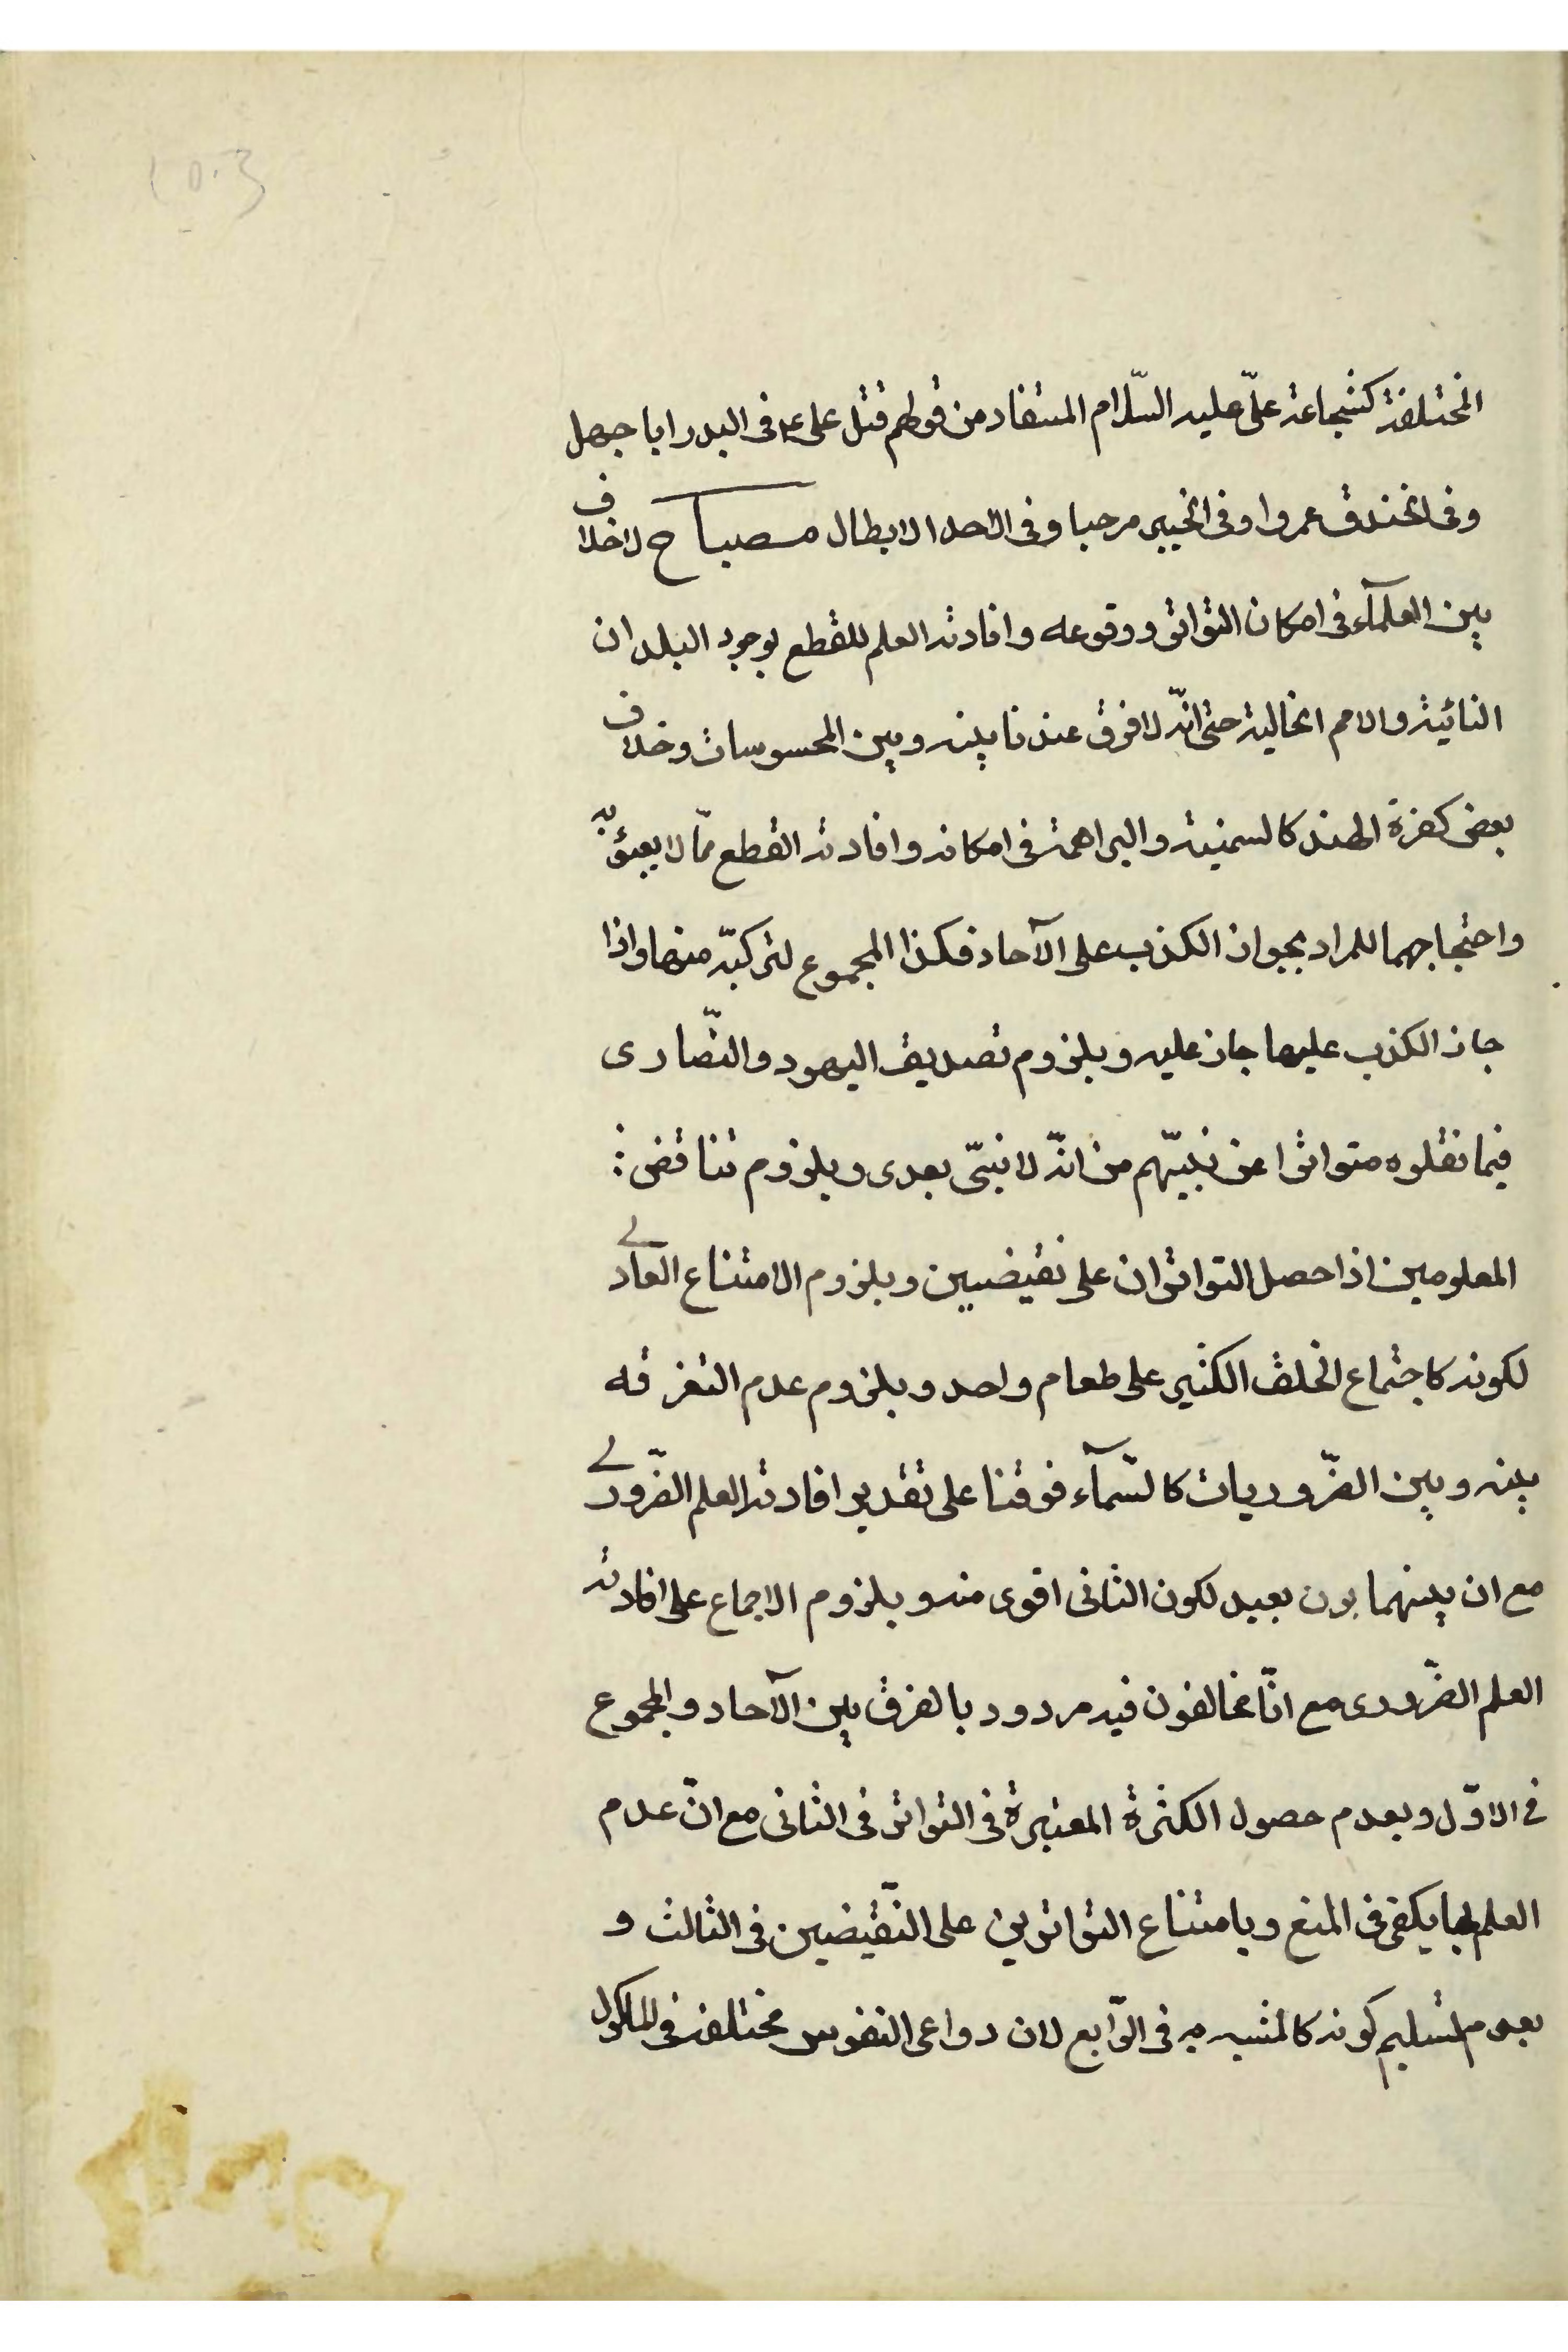 المختلفة كشجاعة علیّ علیه السّلام المستفاد من قولهم قتل علی ع فی البدر ابا جهل
وفی الخندق عمروا وفی الخیبر مرحبا وفی الاحد الابطال مصباح لاخلاف
بین العلمآء فی امکان التواتر ووقوعه وافادته العلم للقطع بوجود البلدان
النائیة والامم الخالیة حتی انّه لا فرق عندنا بینه وبین المحسوسات وخلاف
بعض کفرة الهند کالسمنیة والبراهمة فی امکانه وافادته القطع ممّا لا یعبؤ به
واحتجاجهما للمراد بجواز الکذب علی الآحاد فکذا المجموع لترکبّه منها واذا
جاز الکذب علیها جاز علیه وبلزوم تصدیق الیهود والنّصاری
فیما نقلوه متواترا عن نبیّهم من انّه لا نبیّ بعدی وبلزوم تناقض
المعلومین اذا حصل التواتران علی نقیضین وبلزوم الامتناع العادی
لکونه کاجتماع الخلق الکثیر علی طعام واحد وبلزوم عدم التفرقه
بینه وبین الضّروریات کالسّمآء فوقنا علی تقدیر افادته العلم الضّروری
مع ان بینهما بون بعید لکون الثانی اقوی منه وبلزوم الاجماع علی افادته
العلم الضّروری مع انّا مخالفون فیه مردود بالفرق بین الآحاد والمجموع
فی الاوّل وبعدم حصول الکثرة المعتبرة فی التواتر فی الثانی مع انّ عدم
العلم بها یکفی فی المنع وبامتناع التواترین علی النّقیضین فی الثالث و
بعدم تسلیم کونه کالمشبه به فی الرّابع لان دواعی النفوس مختلفة فی المأکول